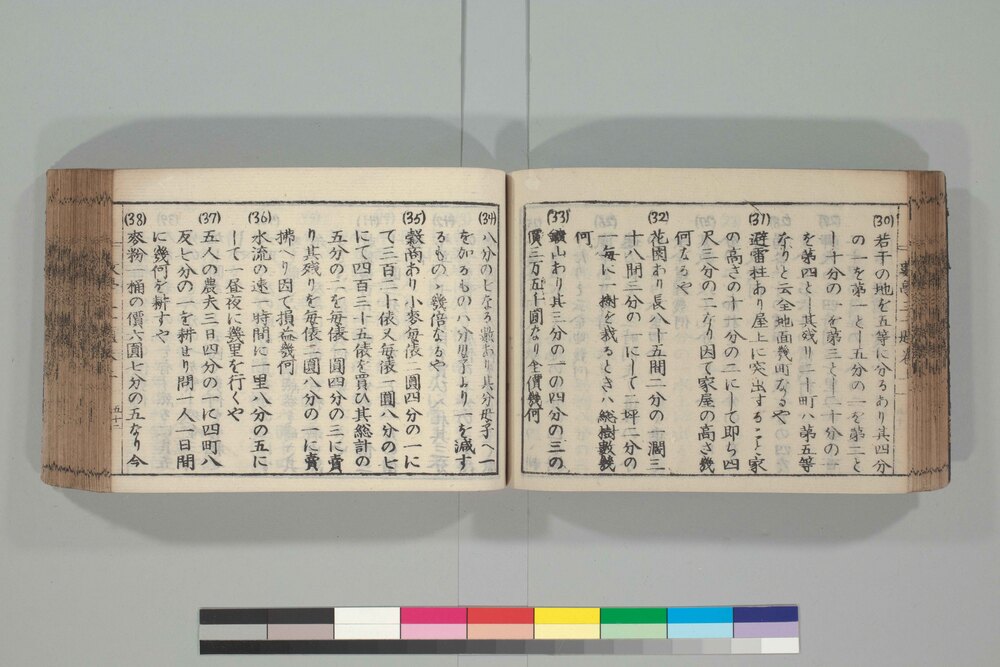 (30) 若干の地を五等に分るあり其四分
の一を第一とし五分の一を第二と
し十分の一を第三とし二十分の一
を第四とし其残り二十町ハ第五等
なりと云全地面幾町なるや
(31) 避雷柱あり屋上に突出すること家
の高さの十九分の二にして即ち四
尺三分の二なり因て家屋の高さ幾
何なるや
(32) 花園あり長八十五間二分の一濶三
十八間三分の一にして二坪二分の
一毎に一樹を栽るときハ総樹數幾
何
(33) 鑛山あり其三分の一の四分の三の
價三万五千圓なり全價幾何
(34) 八分の七なる數あり其分母子へ一
を加るものハ分母子より一を減す
るものゝ幾倍なるや
(35) 穀商あり小麥毎俵一圓四分の一に
て三百二十俵又毎俵一圓八分の七
にて四百三十五俵を買ひ其総計の
五分の二を毎俵一圓四分の三に賣
り其残りを毎俵二圓八分の一に賣
拂へり因て損益幾何
(36) 水流の速一時間に一里八分の五に
して一昼夜に幾里を行くや
(37) 五人の農夫三日四分の一に四町八
反七分の一を耕せり問一人一日間
に幾何を耕すや
(38) 麥粉一桶の價六圓七分の五なり今